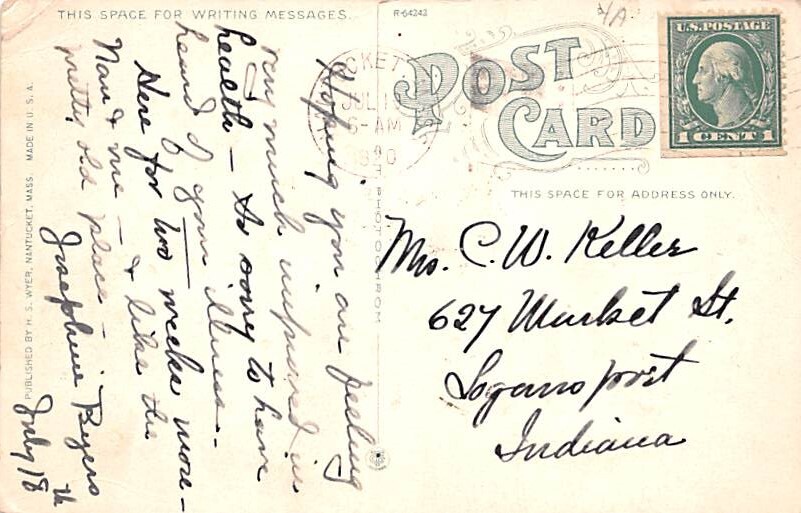 THIS SPACE FOR WRITING MESSAGES.
R-64243
U.S. POSTAGE
1 CENT 1
POST CARD
JUL 1
6-AM
1920
THIS SPACE FOR ADDRESS ONLY.
Mrs. C. W. Keller
627 Market St.
Logansport
Indiana
Hoping you are feeling
very much improved in
health - So sorry to have
heard of your illness -
Here for two weeks more -
Nan & me - & like the
pretty old place -
Josephine Byers
July 18th
PUBLISHED BY H. S. WYER, NANTUCKET, MASS. MADE IN U.S.A.